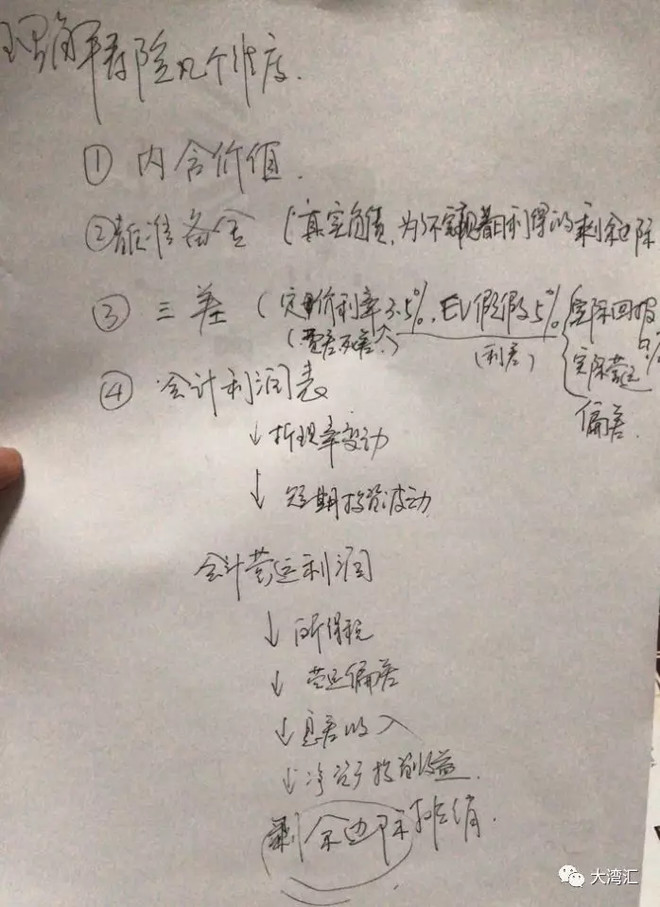 理解寿险几个维度.
① 内含价值.
② 准备金 (真实负债, 为了不实现首日利得的剩余边际
③ 三差 (定价利率3.5%, EV假设5% { 实际回报
(费差死差) (利差) 实际营运
偏差.
④ 会计利润表
↓ 折现率变动
↓ 短期投资波动
会计营运利润
↓ 所得税
↓ 营运偏差
↓ 息差收入
↓ 净资产投资收益.
剩余边际摊销.
大湾汇